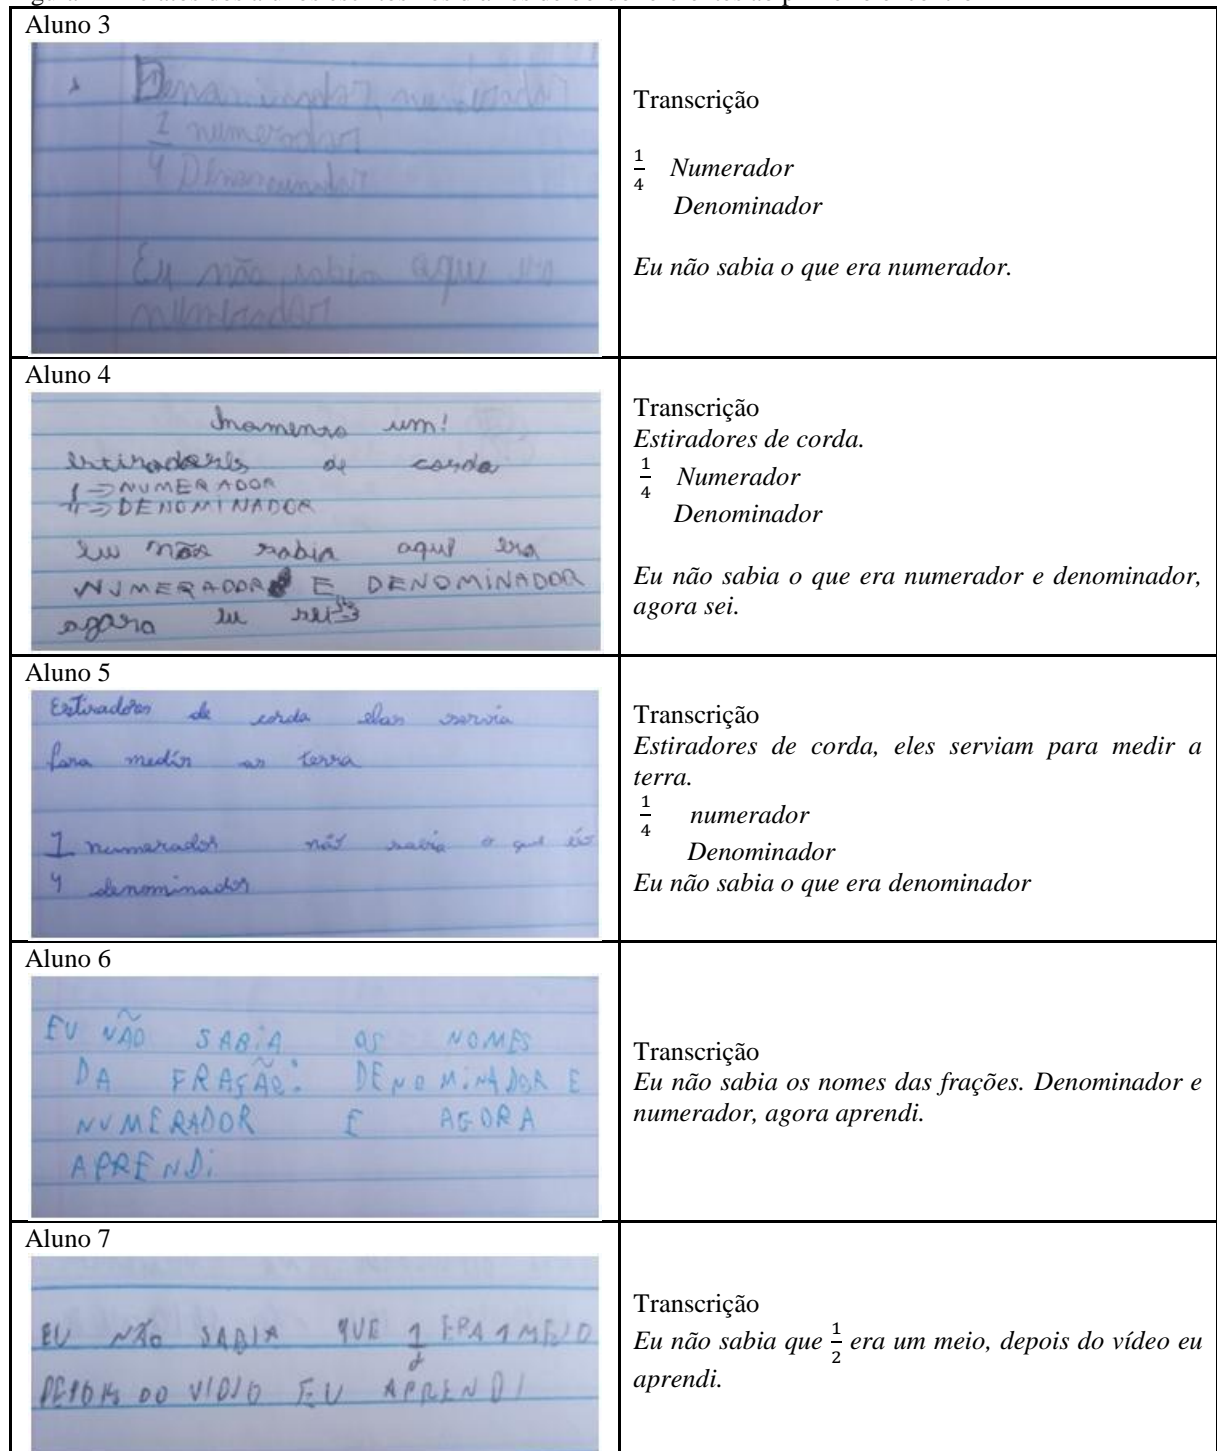 Aluno 3
Denominador, numerador
1 numerador
4 Denominador
Eu não sabia aqu era
numerador
Transcrição
1/4 Numerador
Denominador
Eu não sabia o que era numerador.
Aluno 4
um!
estiradores de corda
1 => NUMERADOR
4 => DENOMINADOR
eu não sabia aqui era
NUMERADOR E DENOMINADOR
agora eu sei
Transcrição
Estiradores de corda.
1/4 Numerador
Denominador
Eu não sabia o que era numerador e denominador,
agora sei.
Aluno 5
Estiradores de corda elas servia
para medir as terra
1 numerador não sabia o que
4 denominador
Transcrição
Estiradores de corda, eles serviam para medir a
terra.
1/4 numerador
Denominador
Eu não sabia o que era denominador
Aluno 6
EU NÃO SABIA OS NOMES
DA FRAÇÃO: DENOMINADOR E
NUMERADOR E AGORA
APRENDi
Transcrição
Eu não sabia os nomes das frações. Denominador e
numerador, agora aprendi.
Aluno 7
EU NÃO SABIA QUE 1/2 ERA 1 MEIO
DEPOIS DO VIDIO EU APRENDI
Transcrição
Eu não sabia que 1/2 era um meio, depois do vídeo eu
aprendi.